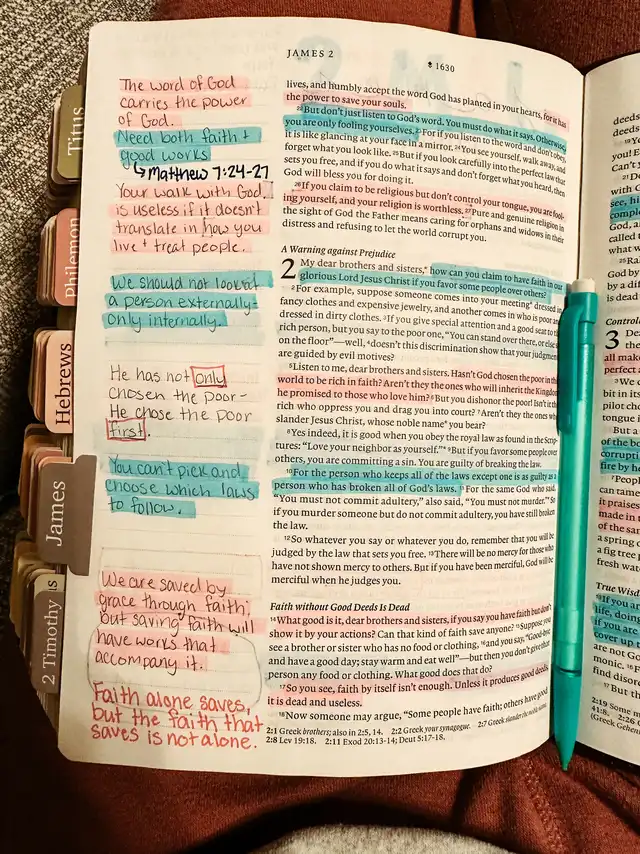 JAMES 2
1630
The word of God
carries the power
of God.
Need both faith +
good works
Matthew 7:24-27
Your walk with God
is useless if it doesn't
translate in how you
live + treat people.
We should not look at
a person externally-
only internally.
He has not only
chosen the poor-
He chose the poor
first.
You can't pick and
choose which laws
to follow.
We are saved by
grace through faith,
but saving faith will
have works that
accompany it.
Faith alone saves,
but the faith that
saves is not alone.
Titus
Philemon
Hebrews
James
2 Timothy
lives, and humbly accept the word God has planted in your hearts, for it has
the power to save your souls.
22 But don't just listen to God's word. You must do what it says. Otherwise,
you are only fooling yourselves. 23 For if you listen to the word and don't obey,
it is like glancing at your face in a mirror. 24 You see yourself, walk away, and
forget what you look like. 25 But if you look carefully into the perfect law that
sets you free, and if you do what it says and don't forget what you heard, then
God will bless you for doing it.
26 If you claim to be religious but don't control your tongue, you are fool-
ing yourself, and your religion is worthless. 27 Pure and genuine religion in
the sight of God the Father means caring for orphans and widows in their
distress and refusing to let the world corrupt you.
A Warning against Prejudice
2 My dear brothers and sisters,* how can you claim to have faith in our
glorious Lord Jesus Christ if you favor some people over others?
2 For example, suppose someone comes into your meeting* dressed in
fancy clothes and expensive jewelry, and another comes in who is poor and
dressed in dirty clothes. 3 If you give special attention and a good seat to the
rich person, but you say to the poor one, "You can stand over there, or else sit
on the floor"—well, 4 doesn't this discrimination show that your judgments
are guided by evil motives?
5 Listen to me, dear brothers and sisters. Hasn't God chosen the poor in this
world to be rich in faith? Aren't they the ones who will inherit the Kingdom
he promised to those who love him? 6 But you dishonor the poor! Isn't it the
rich who oppress you and drag you into court? 7 Aren't they the ones who
slander Jesus Christ, whose noble name* you bear?
8 Yes indeed, it is good when you obey the royal law as found in the Scrip-
tures: "Love your neighbor as yourself."* 9 But if you favor some people over
others, you are committing a sin. You are guilty of breaking the law.
10 For the person who keeps all of the laws except one is as guilty as a
person who has broken all of God's laws. 11 For the same God who said,
"You must not commit adultery," also said, "You must not murder."* So
if you murder someone but do not commit adultery, you have still broken
the law.
12 So whatever you say or whatever you do, remember that you will be
judged by the law that sets you free. 13 There will be no mercy for those who
have not shown mercy to others. But if you have been merciful, God will be
merciful when he judges you.
Faith without Good Deeds Is Dead
14 What good is it, dear brothers and sisters, if you say you have faith but don't
show it by your actions? Can that kind of faith save anyone? 15 Suppose you
see a brother or sister who has no food or clothing, 16 and you say, "Good-bye
and have a good day; stay warm and eat well"—but then you don't give that
person any food or clothing. What good does that do?
17 So you see, faith by itself isn't enough. Unless it produces good deeds,
it is dead and useless.
18 Now someone may argue, "Some people have faith; others have good
2:1 Greek brothers; also in 2:5, 14. 2:2 Greek your synagogue. 2:7 Greek slander the noble name.
2:8 Lev 19:18. 2:11 Exod 20:13-14; Deut 5:17-18.